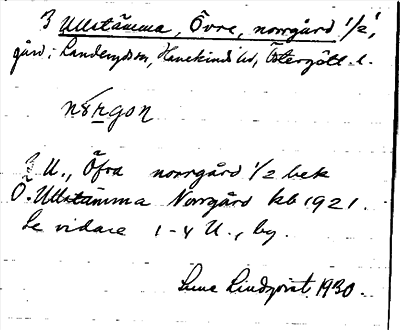 3 Ullstämma, Övre, norrgård 1/2,
gård i Landeryds sn, Hanekinds hd, Östergötl. l.
nǝrgon
3 U., Öfra norrgård 1/2 bek
Ö. Ullstämma Norrgård kb 1921.
Se vidare 1-4 U., by.
Sune Lindqvist 1930.